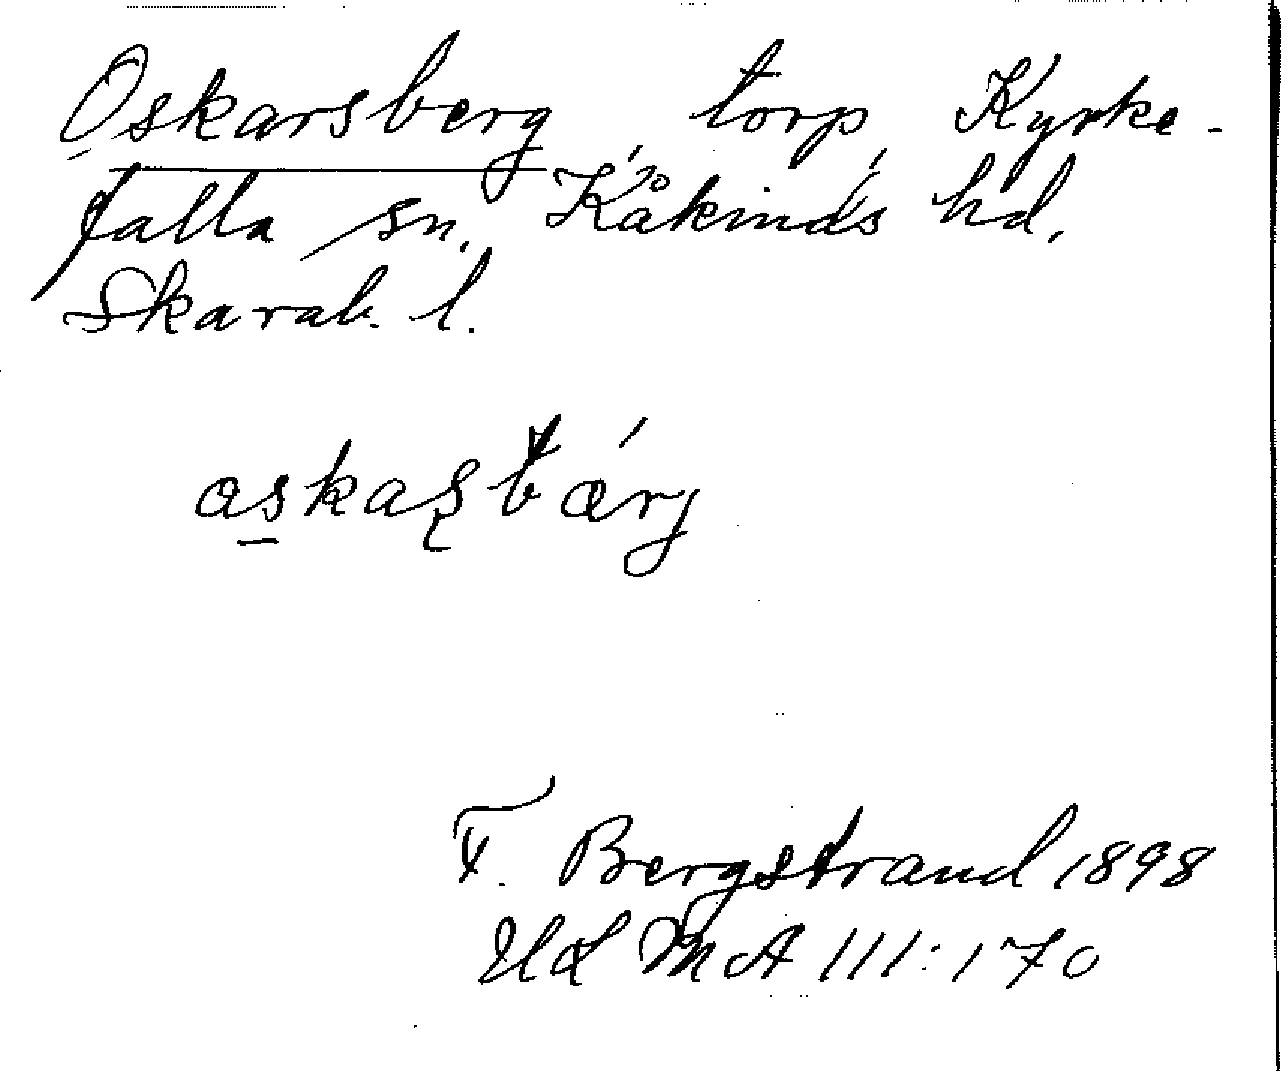 Oskarsberg torp Kyrke-
falla sn. Kåkinds hd.
Skarab. l.
askasbærj
F. Bergstrand 1898
ULMA 111:170